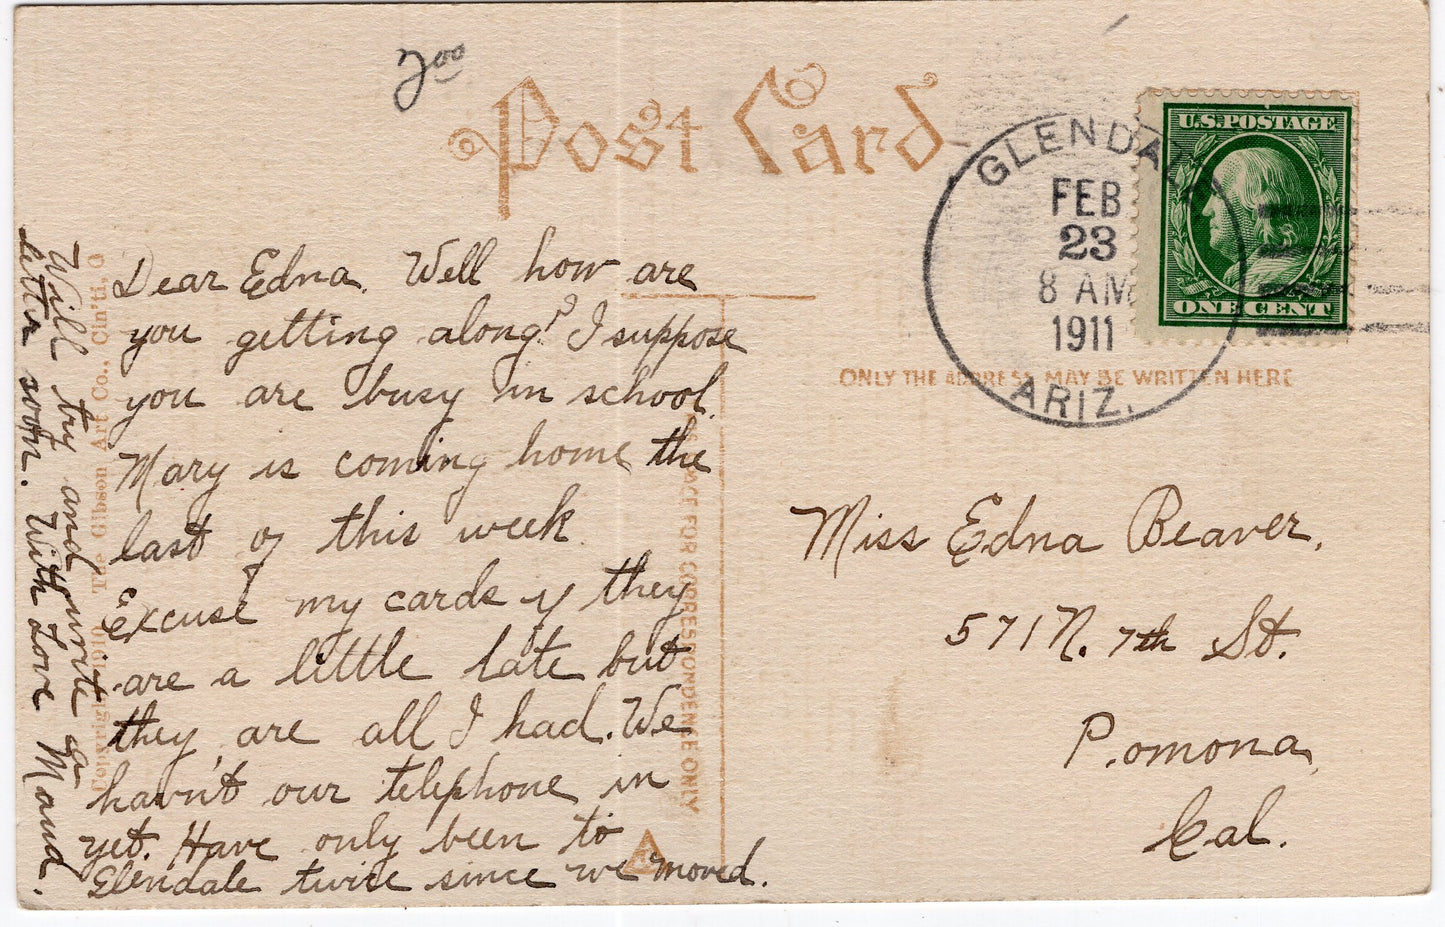 700
Post Card
GLENDALE
FEB
23
8 AM
1911
ARIZ.
U.S. POSTAGE
ONE CENT
ONLY THE ADDRESS MAY BE WRITTEN HERE
Dear Edna. Well how are
you getting along? I suppose
you are busy in school.
Mary is coming home the
last of this week
Excuse my cards if they
are a little late but
they are all I had. We
havn't our telephone in
yet. Have only been to
Glendale twice since we moved.
Will try and write a
letter soon. With Love Maud.
Copyright 1910, The Gibson Art Co., Cin'ti, O
SPACE FOR CORRESPONDENCE ONLY
Miss Edna Beaver,
571 N. 7th St.
Pomona,
Cal.